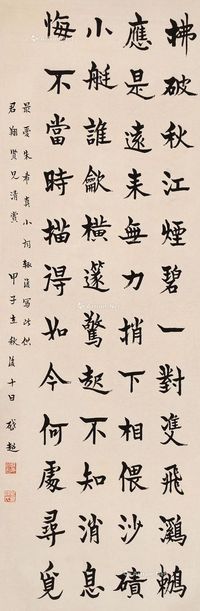 拂破秋江煙碧一對雙飛鸂鶒
應是遠來無力捎下相偎沙磧
小艇誰龡橫篴驚起不知消息
悔不當時描得如今何處尋覓
最愛朱希真小詞輒復寫此供
君翔賢兄清賞 甲子立秋後十日 啓超